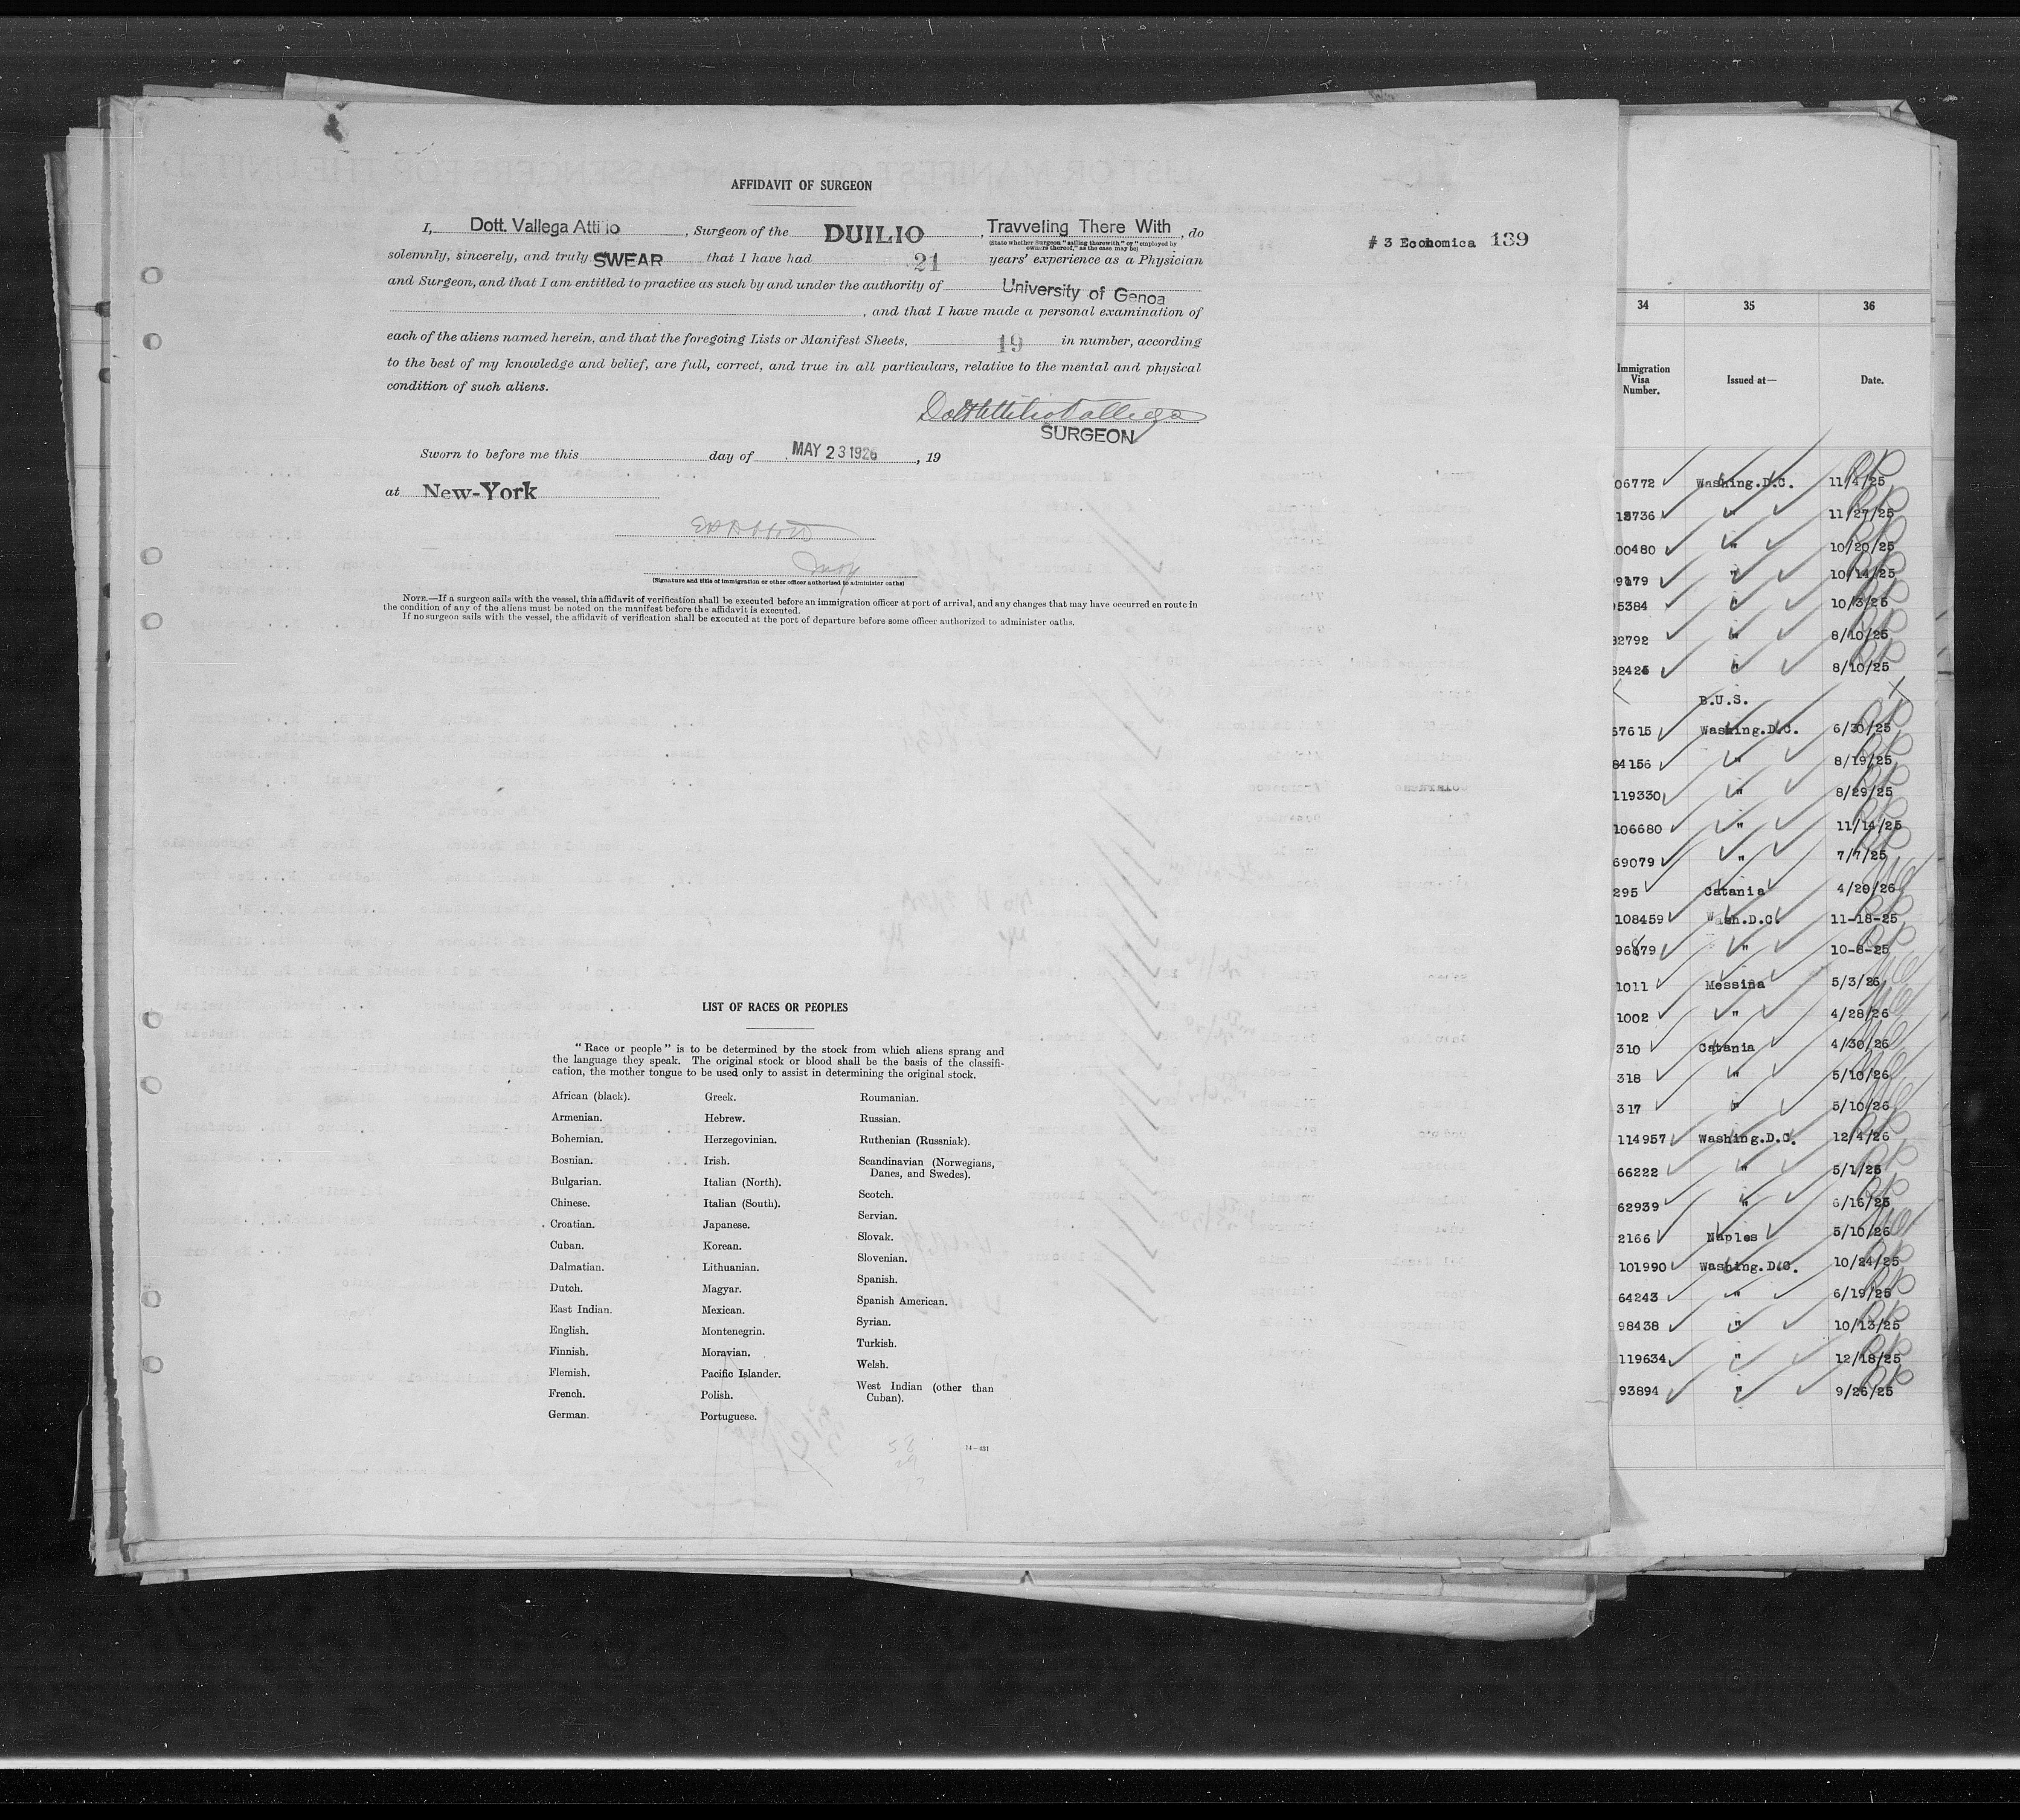 AFFIDAVIT OF SURGEON
I, Dott. Vallega Attilio, Surgeon of the DUILIO, Travveling There With, do
(State whether Surgeon "sailing therewith" or "employed by
owners thereof," as the case may be)
# 3 Economica 139
solemnly, sincerely, and truly SWEAR that I have had 21 years' experience as a Physician
and Surgeon, and that I am entitled to practice as such by and under the authority of University of Genoa
, and that I have made a personal examination of
each of the aliens named herein, and that the foregoing Lists or Manifest Sheets, 19 in number, according
to the best of my knowledge and belief, are full, correct, and true in all particulars, relative to the mental and physical
condition of such aliens.
Dott Attilio Vallega
SURGEON
Sworn to before me this day of MAY 23 1926, 19
at New-York
(Signature and title of immigration or other officer authorized to administer oaths)
NOTE.—If a surgeon sails with the vessel, this affidavit of verification shall be executed before an immigration officer at port of arrival, and any changes that may have occurred en route in
the condition of any of the aliens must be noted on the manifest before the affidavit is executed.
If no surgeon sails with the vessel, the affidavit of verification shall be executed at the port of departure before some officer authorized to administer oaths.
LIST OF RACES OR PEOPLES
"Race or people" is to be determined by the stock from which aliens sprang and
the language they speak. The original stock or blood shall be the basis of the classifi-
cation, the mother tongue to be used only to assist in determining the original stock.
African (black).
Armenian.
Bohemian.
Bosnian.
Bulgarian.
Chinese.
Croatian.
Cuban.
Dalmatian.
Dutch.
East Indian.
English.
Finnish.
Flemish.
French.
German.
Greek.
Hebrew.
Herzegovinian.
Irish.
Italian (North).
Italian (South).
Japanese.
Korean.
Lithuanian.
Magyar.
Mexican.
Montenegrin.
Moravian.
Pacific Islander.
Polish.
Portuguese.
Roumanian.
Russian.
Ruthenian (Russniak).
Scandinavian (Norwegians,
Danes, and Swedes).
Scotch.
Servian.
Slovak.
Slovenian.
Spanish.
Spanish American.
Syrian.
Turkish.
Welsh.
West Indian (other than
Cuban).
14—431
34 35 36
Immigration
Visa
Number.
Issued at—
Date.
06772 Washing.D.C. 11/4/25
12736 " 11/27/25
00480 " 10/20/25
99179 " 10/14/25
95384 " 10/3/25
82792 " 8/10/25
82425 " 8/10/25
B.U.S.
67615 Washing.D.C. 6/30/25
84156 " 8/19/25
119330 " 8/29/25
106680 " 11/14/25
69079 " 7/7/25
295 Catania 4/29/26
108459 Wash.D.C. 11-18-25
96879 " 10-8-25
1011 Messina 5/3/26
1002 " 4/28/26
310 Catania 4/30/26
318 " 5/10/26
317 " 5/10/26
114957 Washing.D.C. 12/4/26
66222 " 5/1/25
62939 " 6/16/25
2166 Naples 5/10/26
101990 Washing.D.C. 10/24/25
64243 " 6/19/25
98438 " 10/13/25
119634 " 12/18/25
93894 " 9/26/25